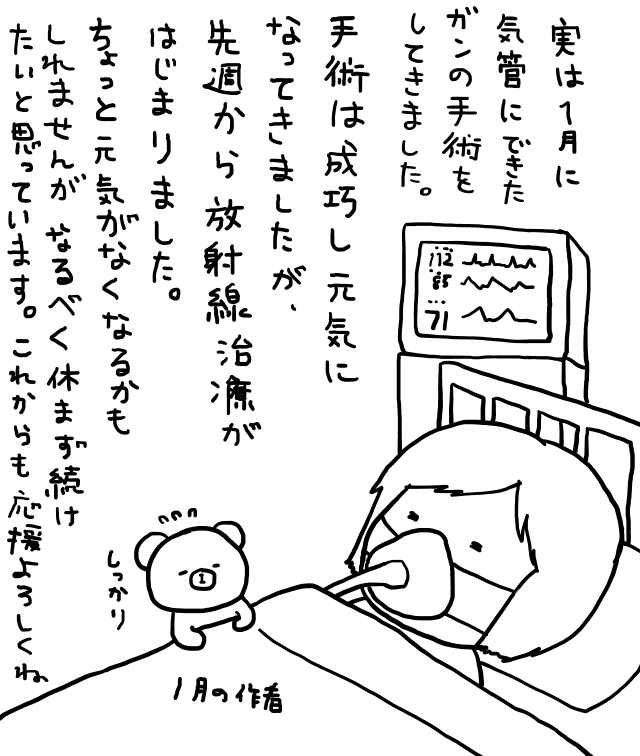 実は1月に
気管にできた
ガンの手術を
してきました。
手術は成巧し元気に
なってきましたが、
先週から放射線治療が
はじまりました。
ちょっと元気がなくなるかも
しれませんが なるべく休まず続け
たいと思っています。これからも応援よろしくね
112
85
71
しっかり
1月の作者